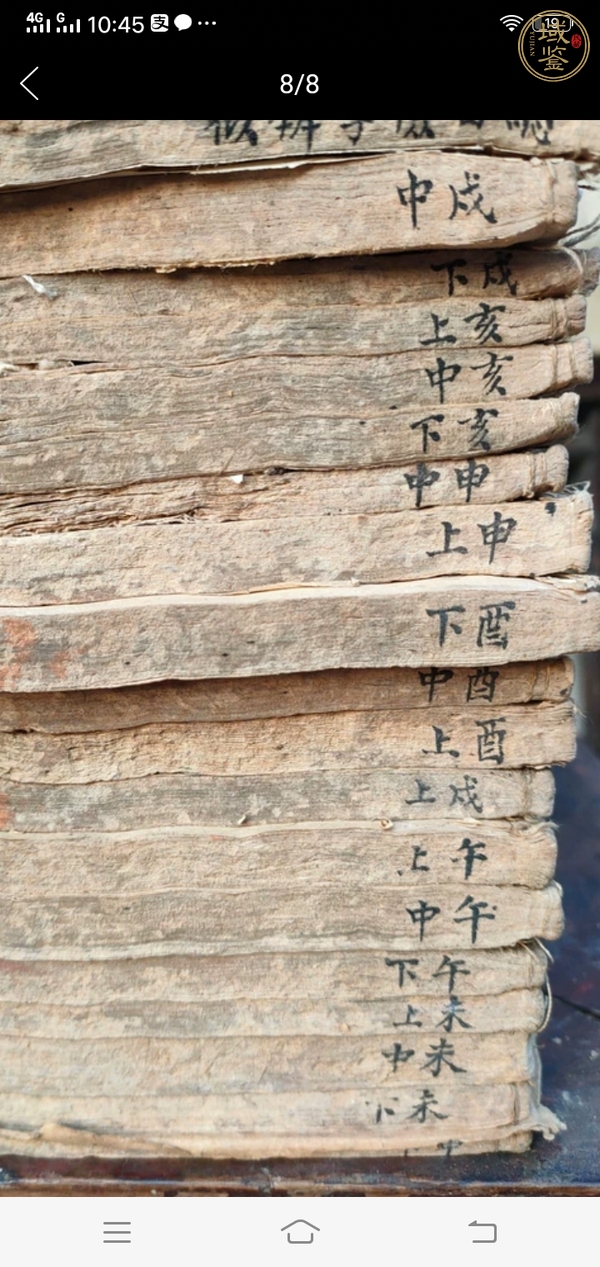 4G G 10:45 支 ... 19
域鉴
YUJIAN
8/8
中戌
下戌
上亥
中亥
下亥
中申
上申
下酉
中酉
上酉
上戌
上午
中午
下午
上未
中未
下未